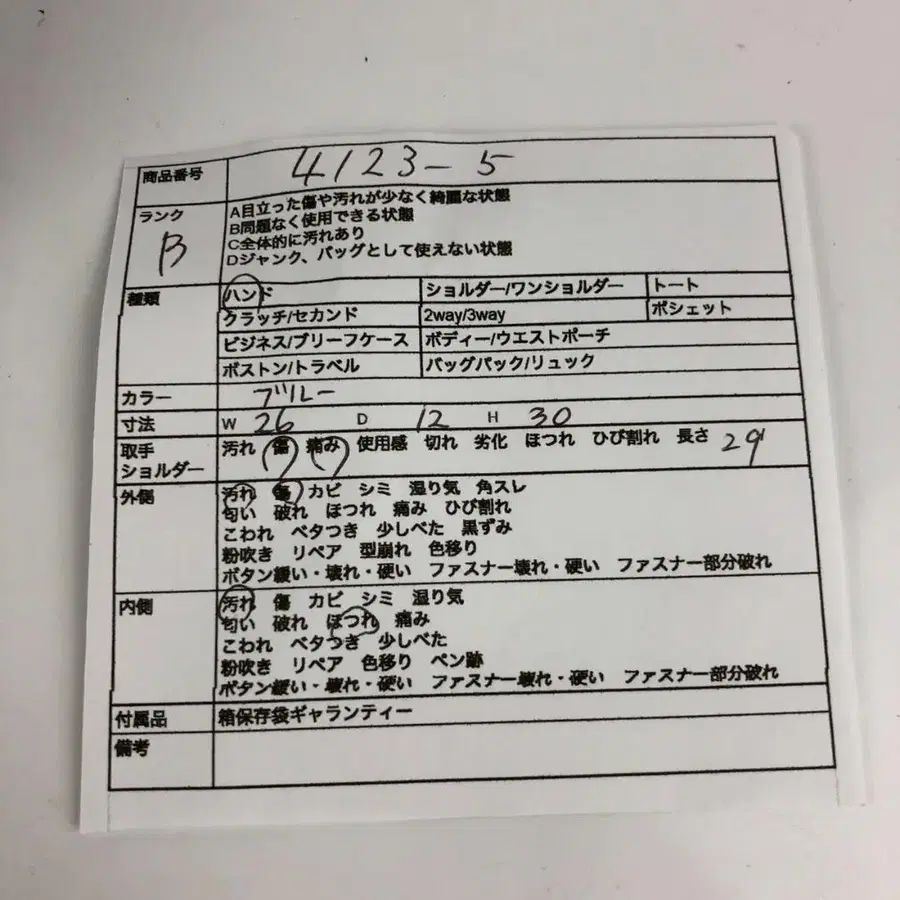 商品番号 4123-5
ランク B
A目立った傷や汚れが少なく綺麗な状態
B問題なく使用できる状態
C全体的に汚れあり
Dジャンク、バッグとして使えない状態
種類 ハンド ショルダー/ワンショルダー トート
クラッチ/セカンド 2way/3way ポシェット
ビジネス/ブリーフケース ボディー/ウエストポーチ
ボストン/トラベル バッグパック/リュック
カラー ブルー
寸法 W 26 D 12 H 30
取手 汚れ 傷 痛み 使用感 切れ 劣化 ほつれ ひび割れ 長さ 29
ショルダー
外側 汚れ 傷 カビ シミ 湿り気 角スレ
匂い 破れ ほつれ 痛み ひび割れ
こわれ ベタつき 少しべた 黒ずみ
粉吹き リペア 型崩れ 色移り
ボタン緩い・壊れ・硬い ファスナー壊れ・硬い ファスナー部分破れ
内側 汚れ 傷 カビ シミ 湿り気
匂い 破れ ほつれ 痛み
こわれ ベタつき 少しべた
粉吹き リペア 色移り ペン跡
ボタン緩い・壊れ・硬い ファスナー壊れ・硬い ファスナー部分破れ
付属品 箱保存袋ギャランティー
備考